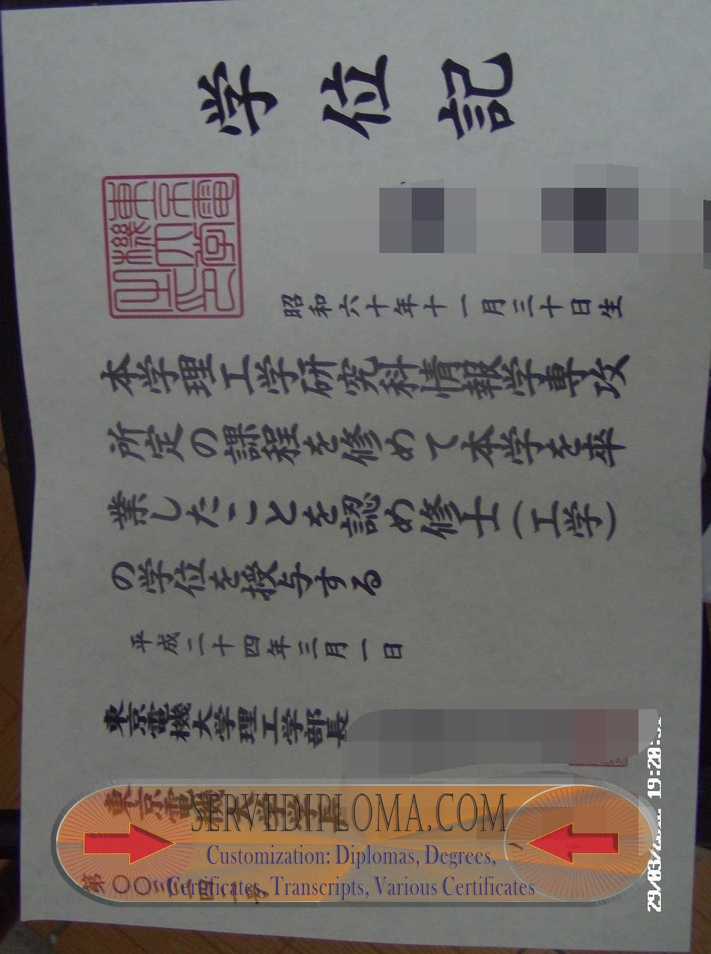 学位記
昭和六十年十一月三十日生
本学理工学研究科情報学専攻
所定の課程を修めて本学を卒
業したことを認め修士(工学)
の学位を授与する
平成二十四年三月一日
東京電機大学理工学部長
東京電機大学学長
SERVEDIPLOMA.COM
Customization: Diplomas, Degrees,
Certificates, Transcripts, Various Certificates